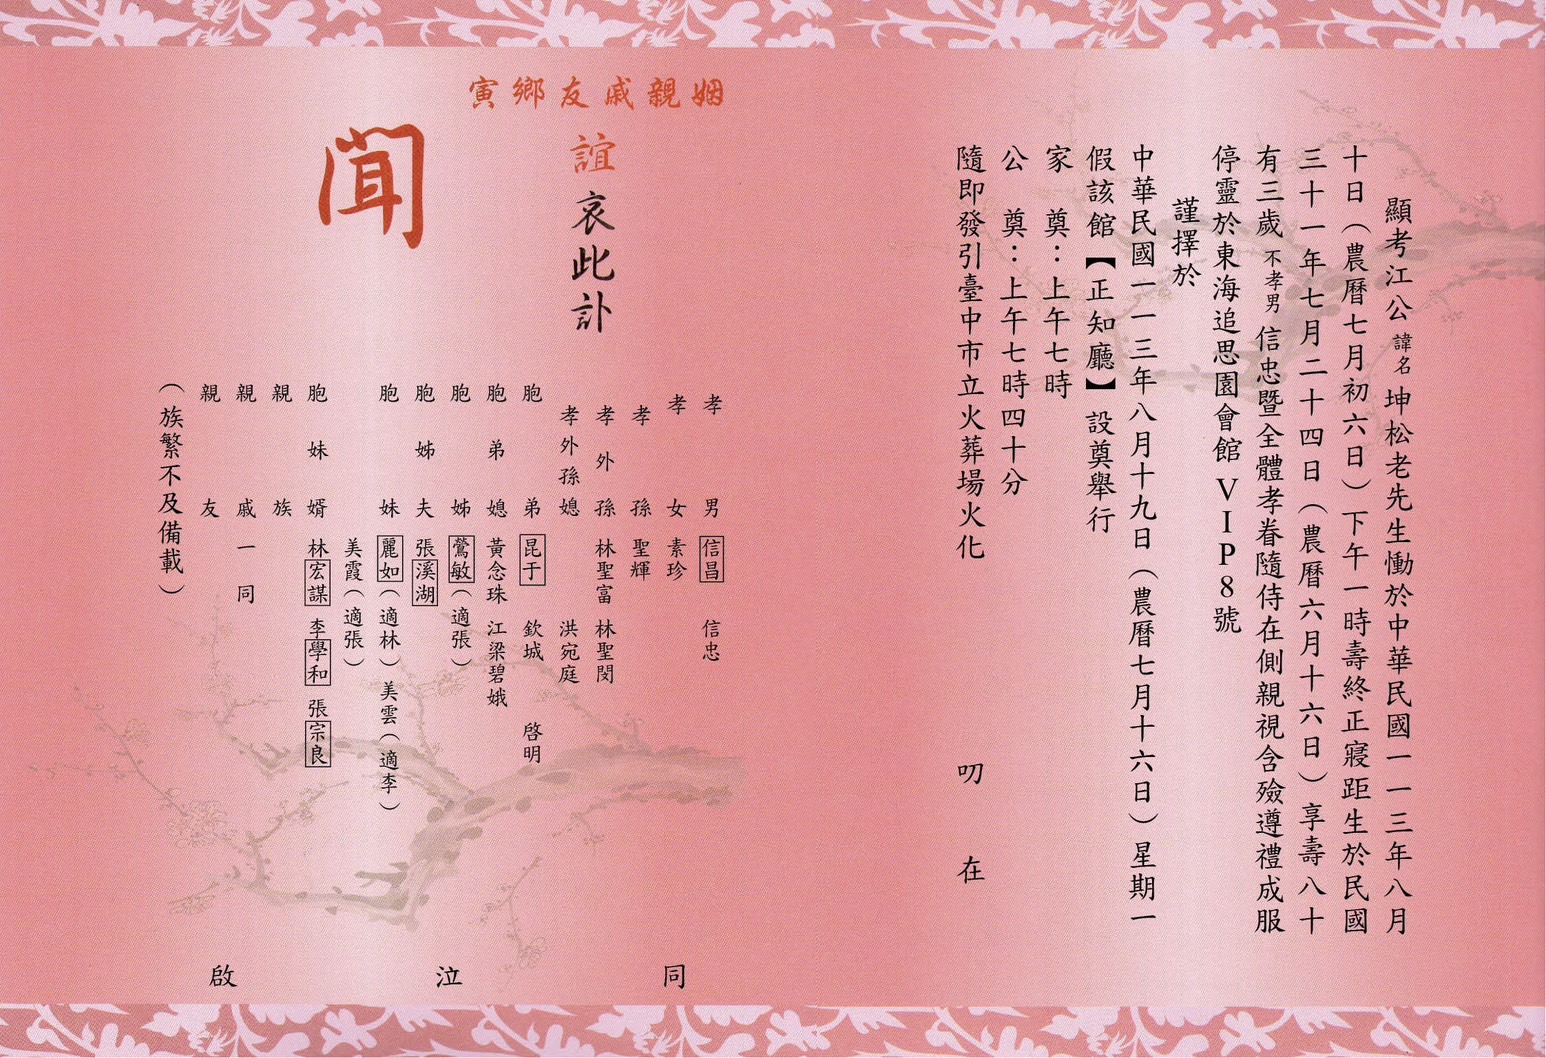 顯考江公諱名坤松老先生慟於中華民國一一三年八月
十日（農曆七月初六日）下午一時壽終正寢距生於民國
三十一年七月二十四日（農曆六月十六日）享壽八十
有三歲不孝男信忠暨全體孝眷隨侍在側親視含殮遵禮成服
停靈於東海追思園會館VIP8號
謹擇於
中華民國一一三年八月十九日（農曆七月十六日）星期一
假該館【正知廳】設奠舉行
家　奠：上午七時
公　奠：上午七時四十分
隨即發引臺中市立火葬場火化
叨　在
姻親戚友鄉寅
誼哀此訃
聞
孝男 信昌 信忠
孝女 素珍
孝孫 聖輝
孝外孫 林聖富 林聖閔
孝外孫媳 洪宛庭
胞弟 昆于 欽城 啓明
胞弟媳 黃念珠 江梁碧娥
胞姊 鶯敏（適張）
胞姊夫 張溪湖
胞妹 麗如（適林） 美雲（適李）
美霞（適張）
胞妹婿 林宏謀 李學和 張宗良
親族
親戚一同
親友
（族繁不及備載）
同泣啟